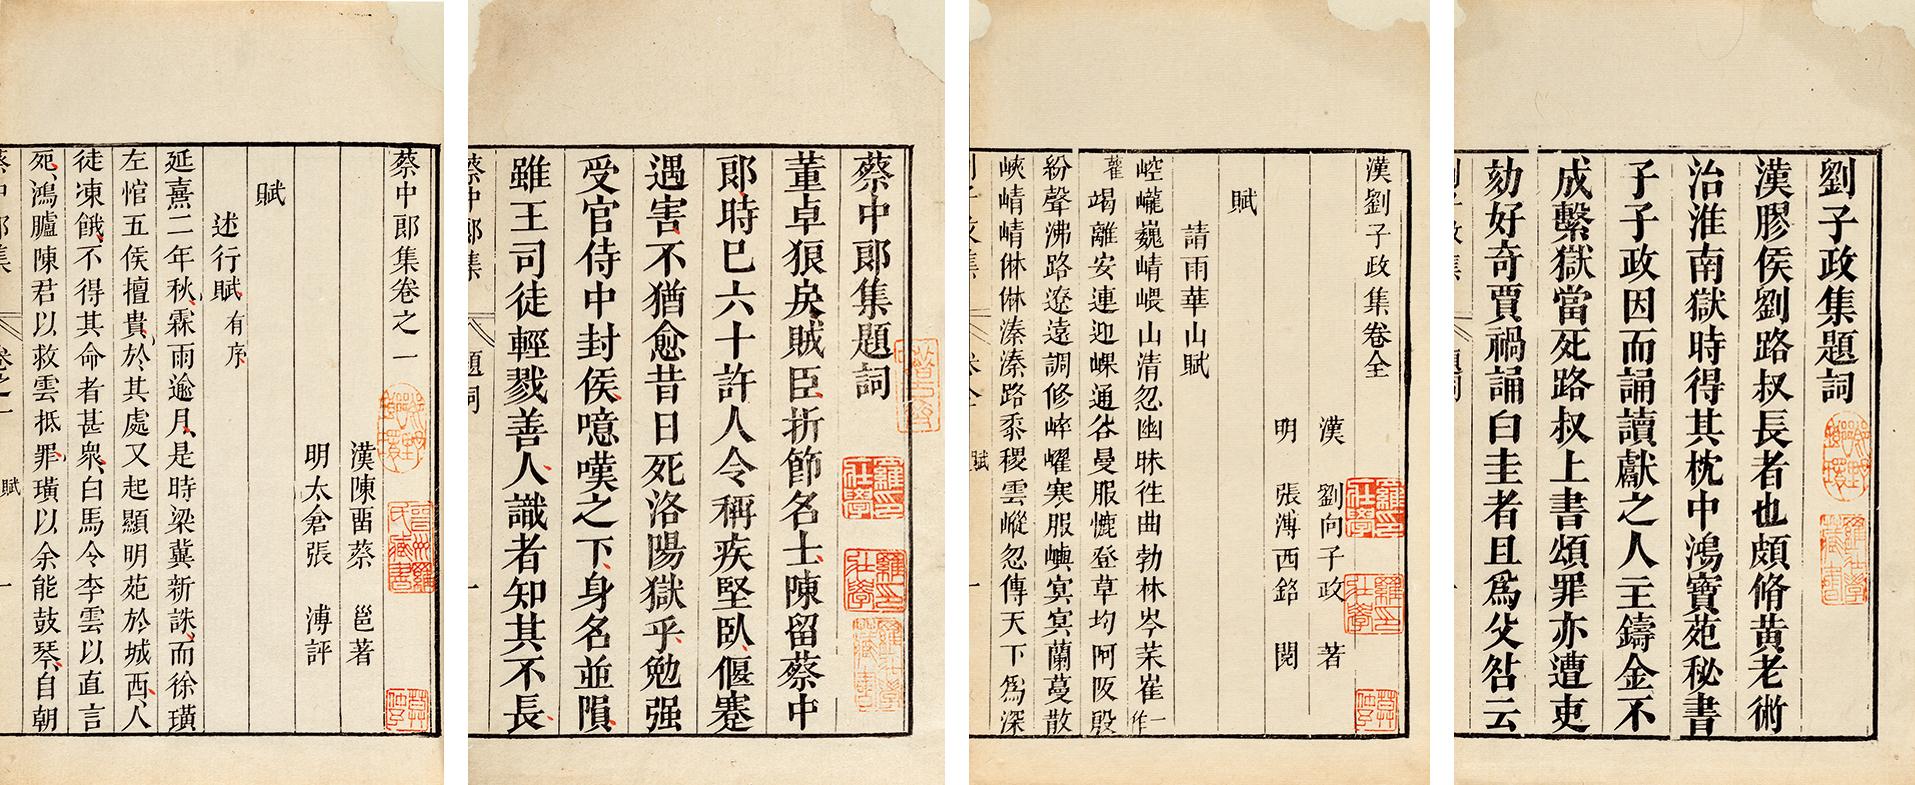 劉子政集題詞
漢膠侯劉路叔長者也頗脩黃老術
治淮南獄時得其枕中鴻寶苑秘書
子子政因而誦讀獻之人主鑄金不
成繫獄當死路叔上書頌罪亦遭吏
劾好奇賈禍誦白圭者且爲父咎云
題詞
漢劉子政集卷全
漢 劉向子政 著
明 張溥西銘 閱
賦
請雨華山賦
崆巄巍崝嵔山清忽幽昧徃曲勃林岑茱崔一作
嶊竭離安連迎崍通谷曼服㦎登草均阿阪殷
紛聲沸路遼遠調修崪嶵寒服㠘寞冥蘭蔓散
峽崝崝倷倷溱溱路黍稷雲嵷忽傳天下爲深
卷全
賦
一
蔡中郎集題詞
董卓狼戾賊臣折節名士陳留蔡中
郎時已六十許人令稱疾堅臥偃蹇
遇害不猶愈昔日死洛陽獄乎勉强
受官侍中封侯噫嘆之下身名並隕
雖王司徒輕戮善人識者知其不長
蔡中郎集
題詞
一
蔡中郎集卷之一
漢陳畱蔡 邕著
明太倉張 溥評
賦
述行賦有序
延熹二年秋霖雨逾月是時梁冀新誅而徐璜
左悺五侯擅貴於其處又起顯明苑於城西人
徒凍餓不得其命者甚衆白馬令李雲以直言
死鴻臚陳君以救雲抵罪璜以余能鼓琴自朝
蔡中郎集
卷之一
賦
一